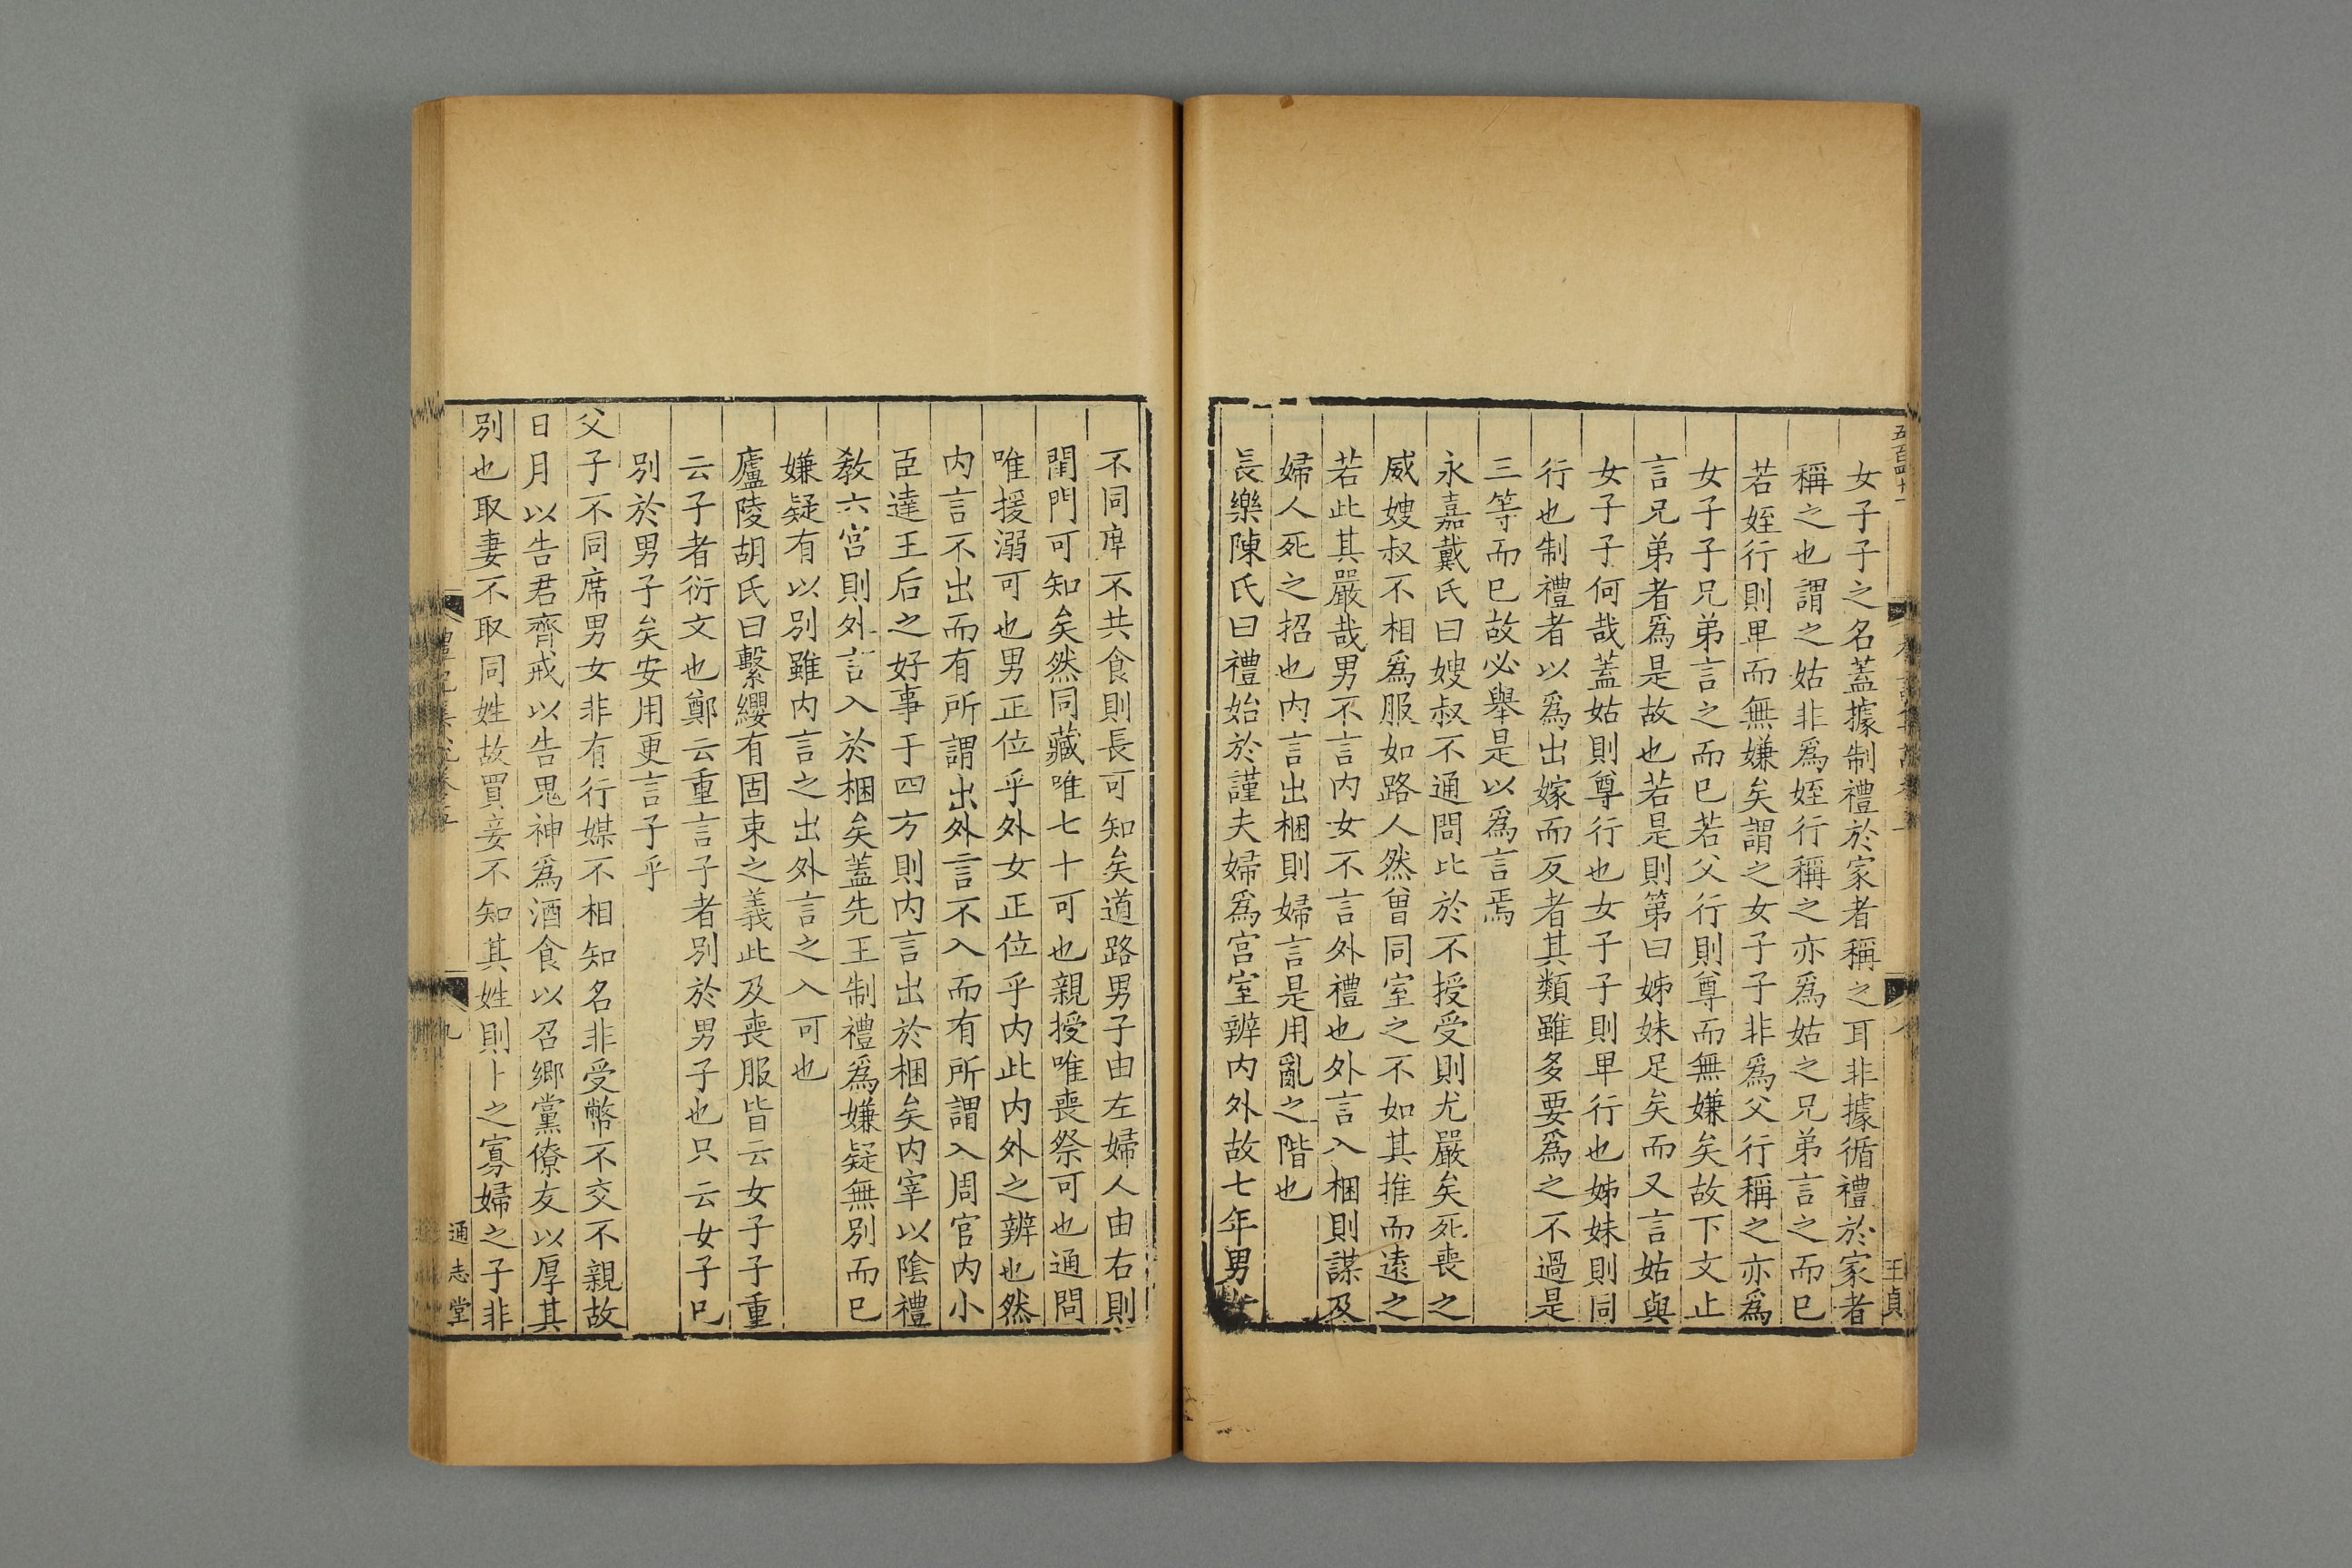 五百四十一
王貞
女子子之名蓋據制禮於家者稱之耳非據循禮於家者
稱之也謂之姑非爲姪行稱之亦爲姑之兄弟言之而已
若姪行則卑而無嫌矣謂之女子子非爲父行稱之亦爲
女子子兄弟言之而已若父行則尊而無嫌矣故下文止
言兄弟者爲是故也若是則第曰姊妹足矣而又言姑與
女子子何哉蓋姑則尊行也女子子則卑行也姊妹則同
行也制禮者以爲出嫁而反者其類雖多要爲之不過是
三等而已故必舉是以爲言焉
永嘉戴氏曰嫂叔不通問比於不授受則尤嚴矣死喪之
威嫂叔不相爲服如路人然曾同室之不如其推而遠之
若此其嚴哉男不言內女不言外禮也外言入梱則謀及
婦人死之招也內言出梱則婦言是用亂之階也
長樂陳氏曰禮始於謹夫婦爲宮室辨內外故七年男女
不同席不共食則長可知矣道路男子由左婦人由右則
閨門可知矣然同藏唯七十可也親授唯喪祭可也通問
唯援溺可也男正位乎外女正位乎內此內外之辨也然
內言不出而有所謂出外言不入而有所謂入周官內小
臣達王后之好事于四方則內言出於梱矣內宰以陰禮
敎六宮則外言入於梱矣蓋先王制禮爲嫌疑無別而已
嫌疑有以別雖內言之出外言之入可也
廬陵胡氏曰繫纓有固束之義此及喪服皆云女子子重
云子者衍文也鄭云重言子者別於男子也只云女子已
別於男子矣安用更言子乎
父子不同席男女非有行媒不相知名非受幣不交不親故
日月以告君齊戒以告鬼神爲酒食以召鄉黨僚友以厚其
別也取妻不取同姓故買妾不知其姓則卜之寡婦之子非
九
通志堂